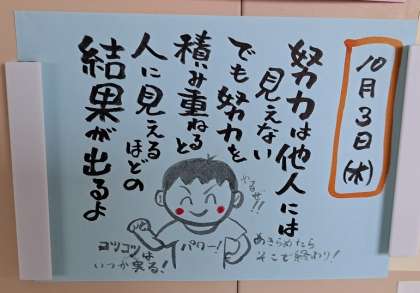 10月3日(水)
努力は他人には
見えない
でも努力を
積み重ねると
人に見えるほどの
結果が出るよ
やるぜ!!
パワー!
コツコツは
いつか実る!
あきらめたら
そこで終わり!